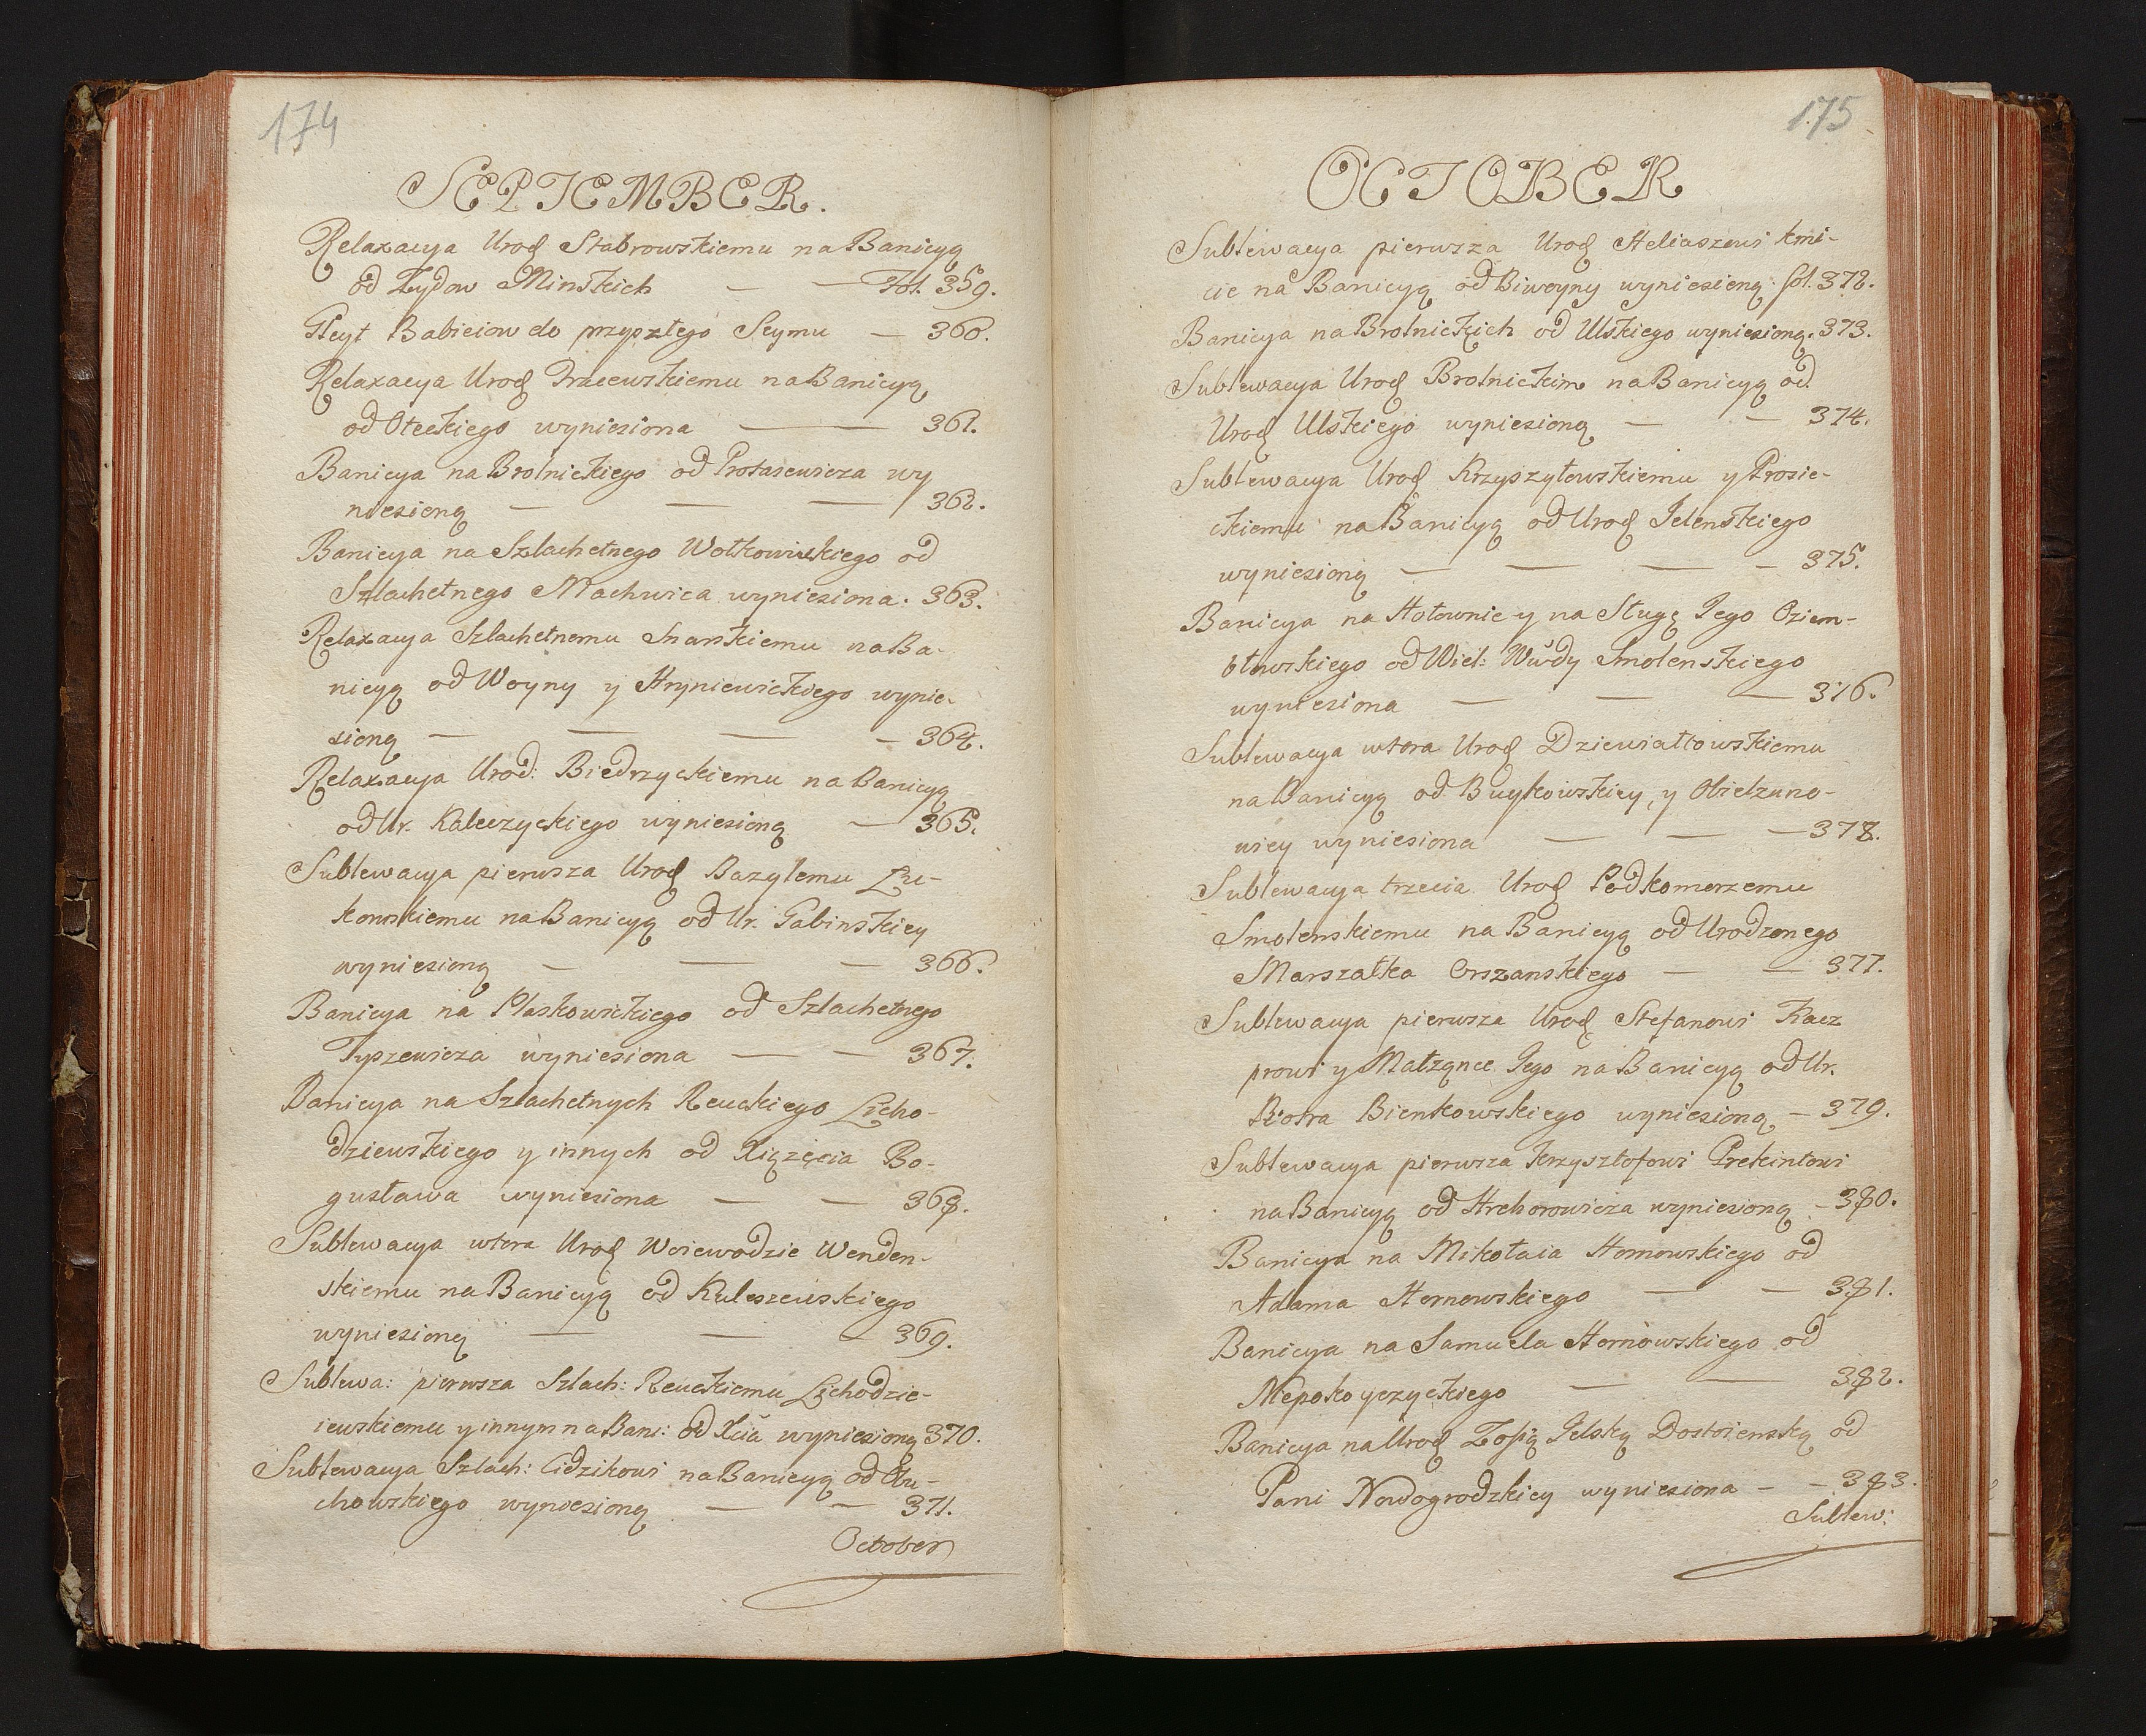 174
SEPTEMBER.
Relaxacya Urod Stabrowskiemu na Banicyą
od Zydow Minskich — — Fol. 359.
Gleyt Babiciow do przyszłego Seymu — 360.
Relaxacya Urod Jrzecewskiemu na Banicyą
od Oteckiego wyniesiona — 361.
Banicya na Brolnickiego od Protasewicza wy
niesioną — — — 362.
Banicya na Szlachetnego Wołkowickiego od
Szlachetnego Machwica wyniesiona. 363.
Relaxacya Szlachetnemu Snarskiemu na Ba-
nicyą od Woyny y Hryniewickiego wynie-
sioną — — — — 364.
Relaxacya Urod: Biedrzyckiemu na Banicyą
od Ur. Kaleczyckiego wyniesioną — 365.
Sublewacya pierwsza Urod Bazylemu Łu-
kowskiemu na Banicyą od Ur. Gabinskiey
wyniesioną — — — 366.
Banicya na Płaskowickiego od Szlachetnego
Tyszewicza wyniesiona — — 367.
Banicya na Szlachetnych Reuckiego Licho-
dziewskiego y innych od Xiązęcia Bo-
gusława wyniesiona — — 368.
Sublewacya wtora Urod Woiewodzie Wenden-
skiemu na Banicyą od Kuleszewskiego
wyniesioną — — — 369.
Sublewa: pierwsza Szlach: Reuckiemu Lichodzie-
iewskiemu y innym na Bani: od Xcia wyniesioną 370.
Sublewacya Szlach: Cidzikowi na Banicyą od Obu-
chowskiego wyniesioną — — 371.
October
175
OCTOBER
Sublewacya pierwsza Urod Heliaszowi Kmi-
cie na Banicyą od Biwoyny wyniesioną. fol. 372.
Banicya na Brolnickich od Ulskiego wyniesioną. 373.
Sublewacya Urod Brolnickim na Banicyą od
Urod Ulskiego wyniesioną — — 374.
Sublewacya Urod Krzyszyłowskiemu y Prosie-
ckiemu na Banicyą od Urod Jelenskiego
wyniesioną — — — — 375.
Banicya na Hołownie y na Sługę Jego Oziem-
błowskiego od Wiel: Wwdy Smolenskiego
wyniesiona — — — 316.
Sublewacya wtora Urod Dziewiałtowskiemu
na Banicyą od Buykowskiey, y Obielzuno-
wiey wyniesiona — — — 378.
Sublewacya trzecia Urod Podkomorzemu
Smolenskiemu na Banicyą od Urodzonego
Marszałka Orszanskiego — — 377.
Sublewacya pierwsza Urod Stefanowi Kacz
prowi y Małząnce Jego na Banicyą od Ur.
Piotra Bienkowskiego wyniesioną — 379.
Sublewacya pierwsza Krzysztofowi Prekintowi
na Banicyą od Hrehorowicza wyniesioną — 380.
Banicya na Mikołaia Hornowskiego od
Adama Hornowskiego — — 381.
Banicya na Samuela Hornowskiego od
Niepokoyczyckiego — — 382.
Banicya na Urod Zofią Jelską Dostoienską od
Pani Nowogrodzkiey wyniesiona — — 383.
Sublew: